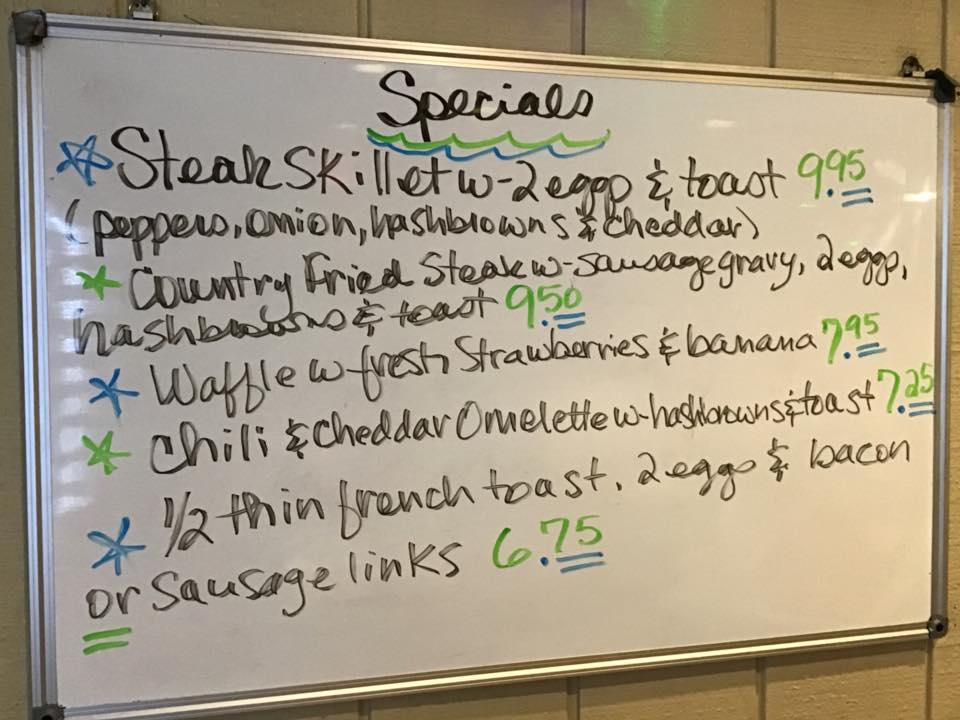 Specials
Steak Skillet w-2 eggs & toast 9.95
(peppers, onion, hashbrowns & cheddar)
Country Fried Steak w-sausage gravy, 2 eggs,
hashbrowns & toast 9.50
Waffle w-fresh Strawberries & banana 7.95
Chili & Cheddar Omelette w-hashbrowns & toast 7.25
1/2 thin french toast, 2 eggs & bacon
or sausage links 6.75